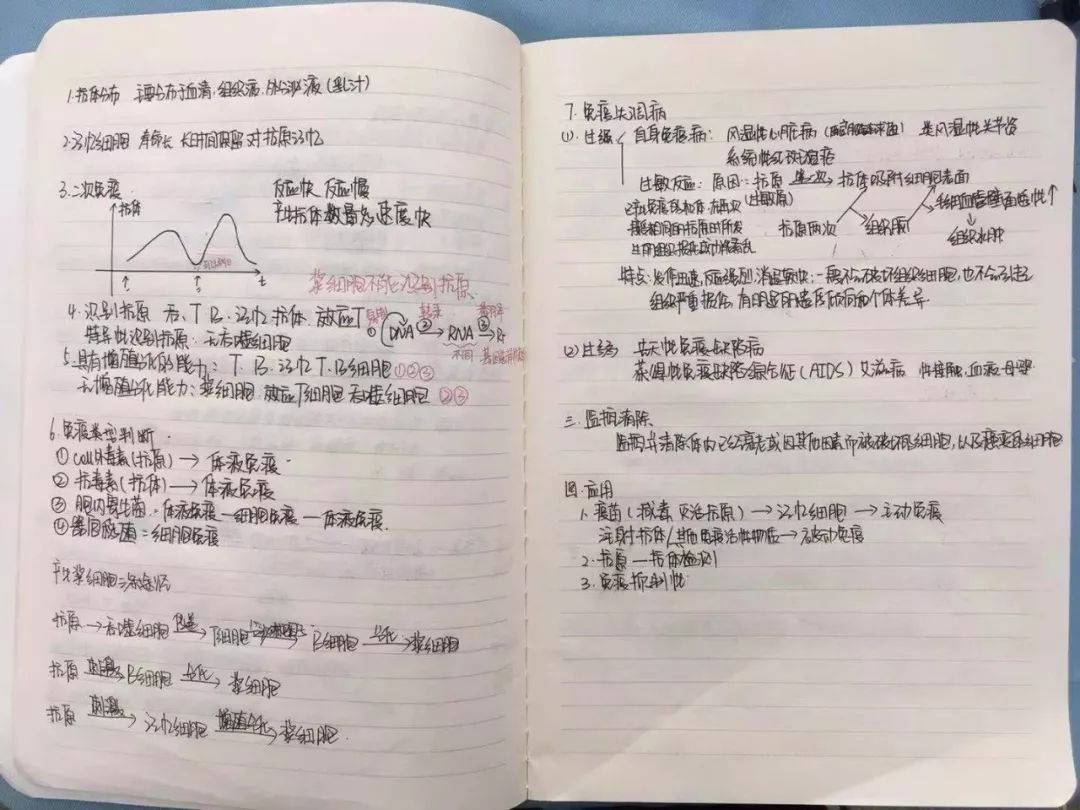 1.抗体分布 主要分布于血清.组织液.外分泌液(乳汁)
2.记忆细胞 寿命长 长时间保留对抗原记忆
3.二次免疫
反应快 反应慢
产生抗体数量多 速度快
抗体
t
浆细胞不能识别抗原
4.识别抗原 T B 记忆 抗体 效应T
特异性识别抗原:无吞噬细胞
① DNA ② RNA ③
不同
5.具有增殖分化的能力:T.B.记忆T.B细胞①②③
无增殖分化能力:浆细胞.效应T细胞 吞噬细胞 ②③
6.免疫类型判断
① 外毒素(抗原)→体液免疫
② 抗毒素(抗体)→体液免疫
③ 胞内寄生菌:体液免疫—细胞免疫—体液免疫
④ 器官移植=细胞免疫
产生浆细胞三条途径
抗原→吞噬细胞 →T细胞 →B细胞 分化→浆细胞
抗原 刺激→B细胞 分化→浆细胞
抗原 刺激→记忆细胞 增殖分化→浆细胞
7.免疫失调病
(1)过强 自身免疫病:风湿性心脏病 类风湿性关节炎
系统性红斑狼疮
过敏反应:原因:抗原 第一次→抗体吸附细胞表面
(过敏原)
已产生免疫的机体,在再次
接受相同的抗原时所发
生的组织损伤或功能紊乱
抗原再次 组织胺 毛细血管壁通透性↑
组织水肿
特点:发作迅速,反应强烈,消退较快;一般不会破坏组织细胞,也不会引起
组织严重损伤,有明显的遗传倾向和个体差异.
(2)过弱 先天性免疫缺陷病
获得性免疫缺陷综合征(AIDS)艾滋病 性接触,血液,母婴
三.监控清除
监控并清除体内已经衰老或因其他因素而被破坏的细胞,以及癌变的细胞
四.应用
1.疫苗(减毒 灭活抗原)→记忆细胞→主动免疫
注射抗体/其他免疫活性物质→被动免疫
2.抗原—抗体检测
3.免疫抑制